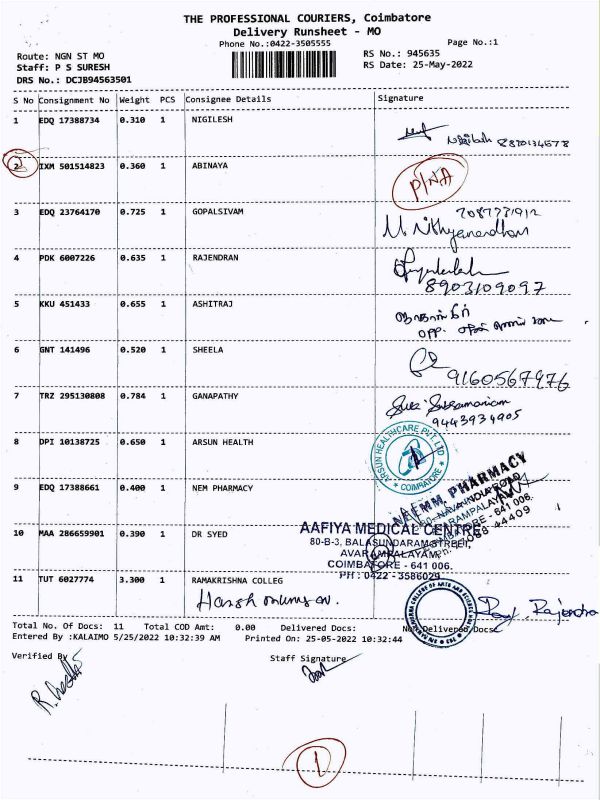 THE PROFESSIONAL COURIERS, Coimbatore
Delivery Runsheet - MO
Phone No.:0422-3505555
Page No.:1
Route: NGN ST MO
RS No.: 945635
Staff: P S SURESH
RS Date: 25-May-2022
DRS No.: DCJB94563501
S No Consignment No Weight PCS Consignee Details Signature
1 EDQ 17388734 0.310 1 NIGILESH
2 IXM 501514823 0.360 1 ABINAYA P/NA
3 EDQ 23764170 0.725 1 GOPALSIVAM
M. Nithyanandhan
4 PDK 6007226 0.635 1 RAJENDRAN
8903109097
5 KKU 451433 0.655 1 ASHITRAJ
opp.
6 GNT 141496 0.520 1 SHEELA
9160567976
7 TRZ 295130808 0.784 1 GANAPATHY
9443934905
8 DPI 10138725 0.650 1 ARSUN HEALTH
ARSUN HEALTHCARE PVT. LTD
* COIMBATORE *
9 EDQ 17388661 0.400 1 NEM PHARMACY
NAEMM PHARMACY
10 MAA 286659901 0.390 1 DR SYED
AAFIYA MEDICAL CENTRE
80-B-3, BALASUNDARAM STREET,
AVARAMPALAYAM,
COIMBATORE - 641 006.
PH : 0422 - 3586029
11 TUT 6027774 3.300 1 RAMAKRISHNA COLLEG
Rajendra
Total No. Of Docs: 11 Total COD Amt: 0.00 Delivered Docs: Non Delivered Docs:
Entered By :KALAIMO 5/25/2022 10:32:39 AM Printed On: 25-05-2022 10:32:44
Verified By
Staff Signature
1